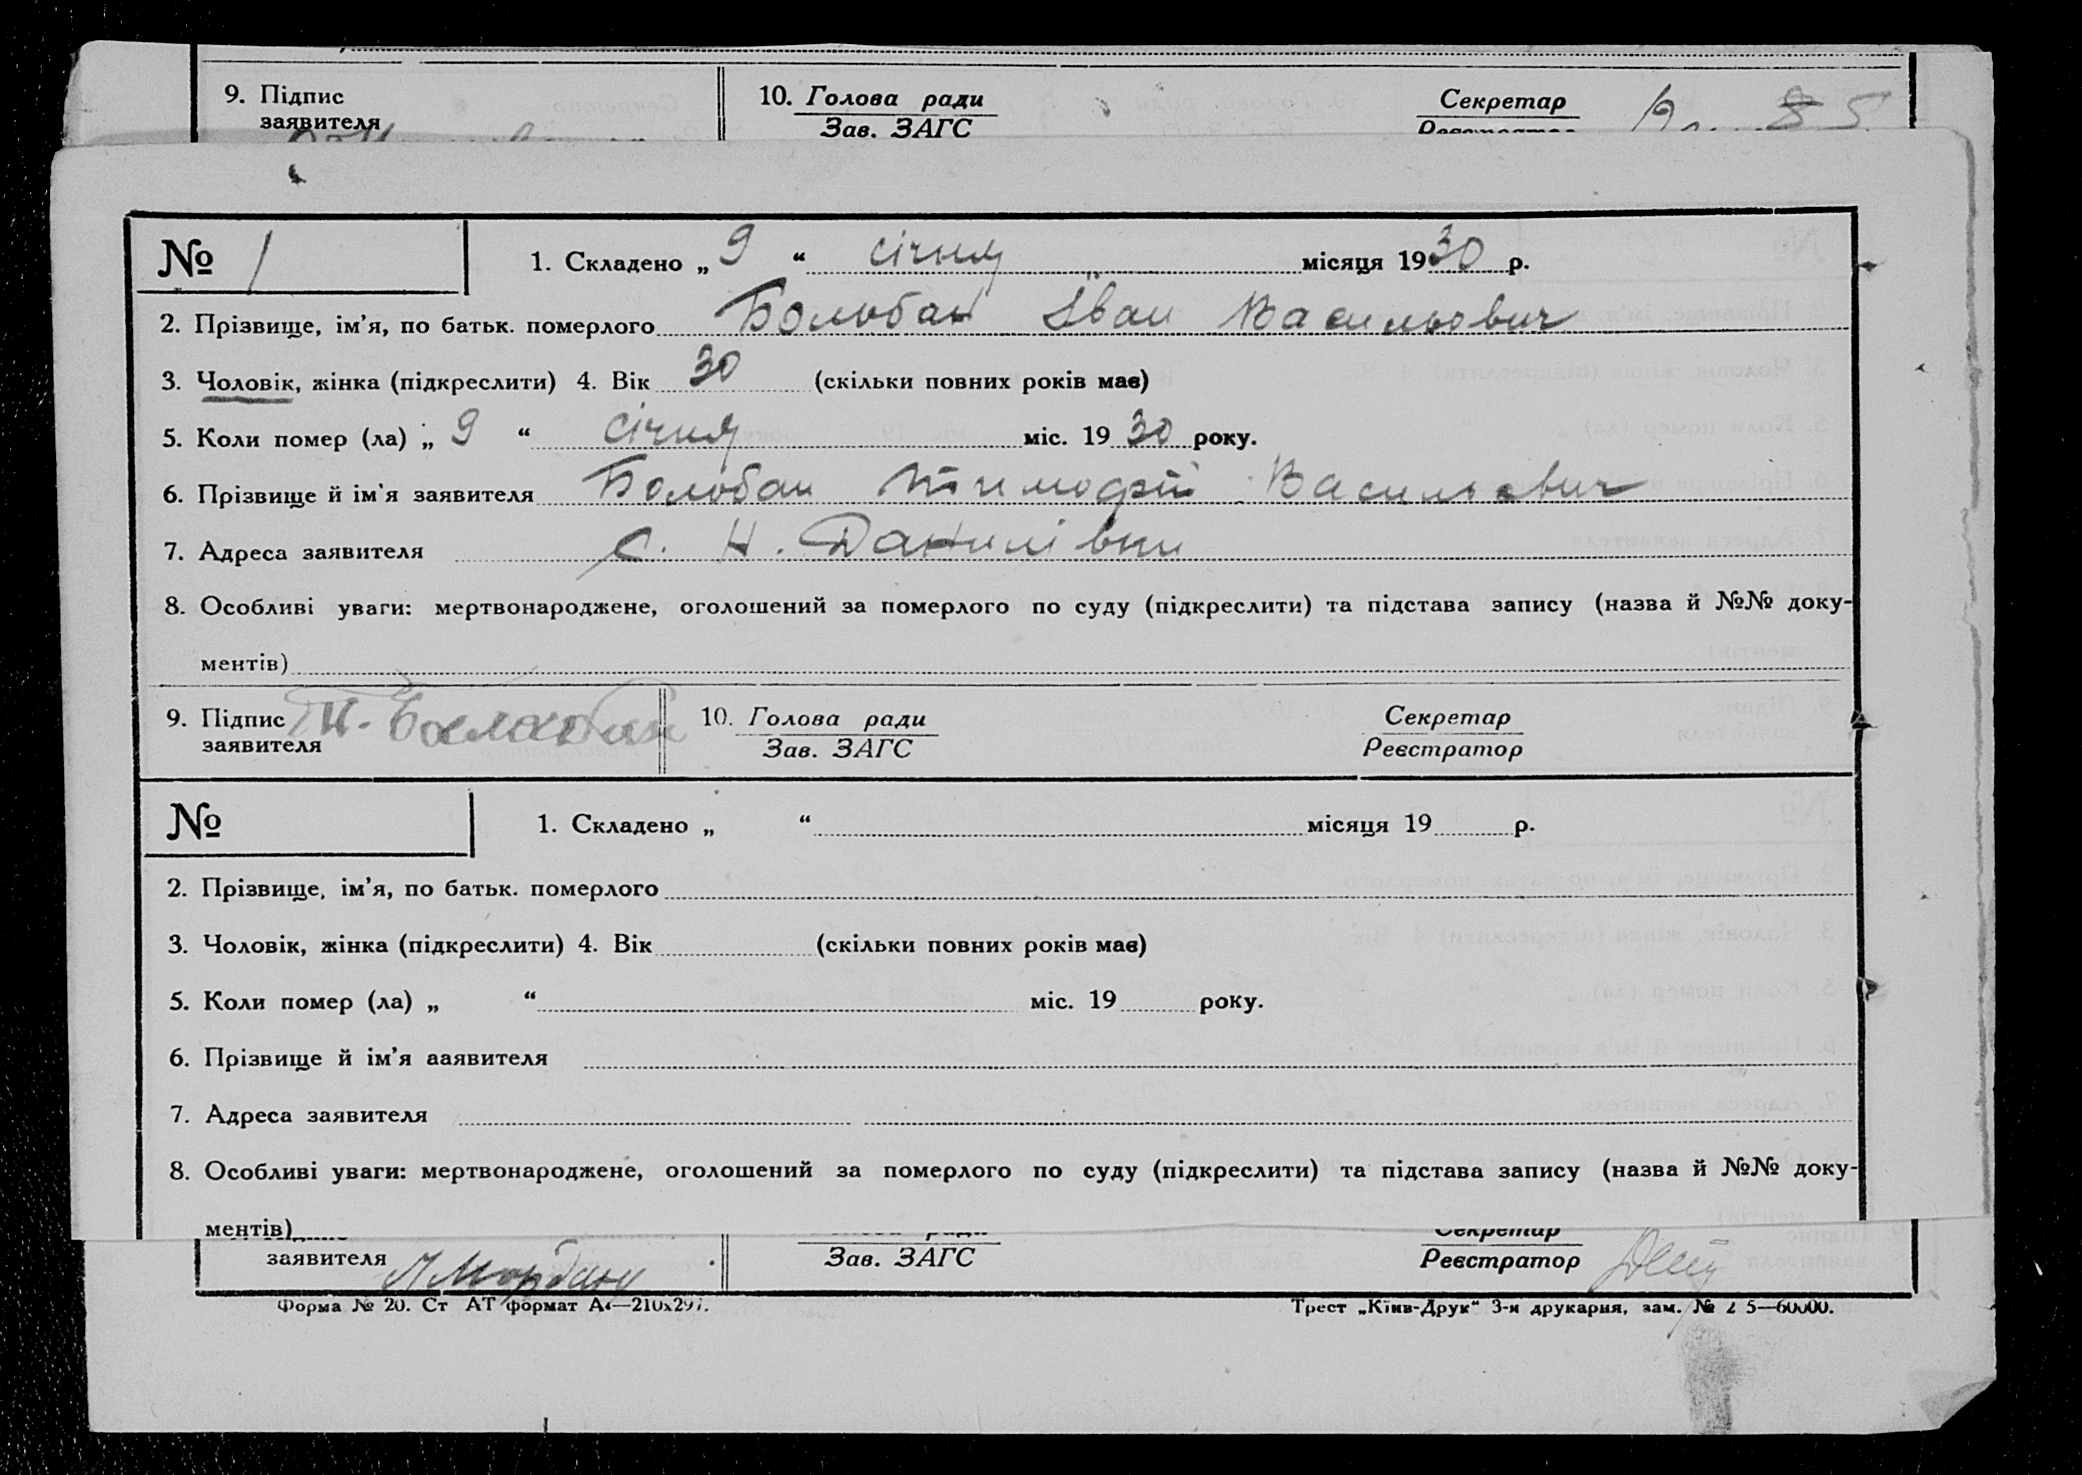 9. Підпис 10. Голова ради Секретар
заявителя Зав. ЗАГС
№ 1 1. Складено „ 9 “ січня місяця 1930 р.
2. Прізвище, ім’я, по батьк. померлого Болобан Іван Васильович
3. Чоловік, жінка (підкреслити) 4. Вік 30 (скільки повних років має)
5. Коли помер (ла) „ 9 “ січня міс. 19 30 року.
6. Прізвище й ім’я заявителя Болобан Тимофій Васильович
7. Адреса заявителя с. Н. Данилівки
8. Особливі уваги: мертвонароджене, оголошений за померлого по суду (підкреслити) та підстава запису (назва й №№ доку-
ментів)
9. Підпис Т. Балабан 10. Голова ради Секретар
заявителя Зав. ЗАГС Реєстратор
№ 1. Складено „ “ місяця 19 р.
2. Прізвище, ім’я, по батьк. померлого
3. Чоловік, жінка (підкреслити) 4. Вік (скільки повних років має)
5. Коли помер (ла) „ “ міс. 19 року.
6. Прізвище й ім’я ааявителя
7. Адреса заявителя
8. Особливі уваги: мертвонароджене, оголошений за померлого по суду (підкреслити) та підстава запису (назва й №№ доку-
ментів)
ради Секретар
заявителя Зав. ЗАГС Реєстратор
Форма № 20. Ст АТ формат А4—210х297. Трест „Київ-Друк“ 3-я друкарня, зам. № 2 5—60000.